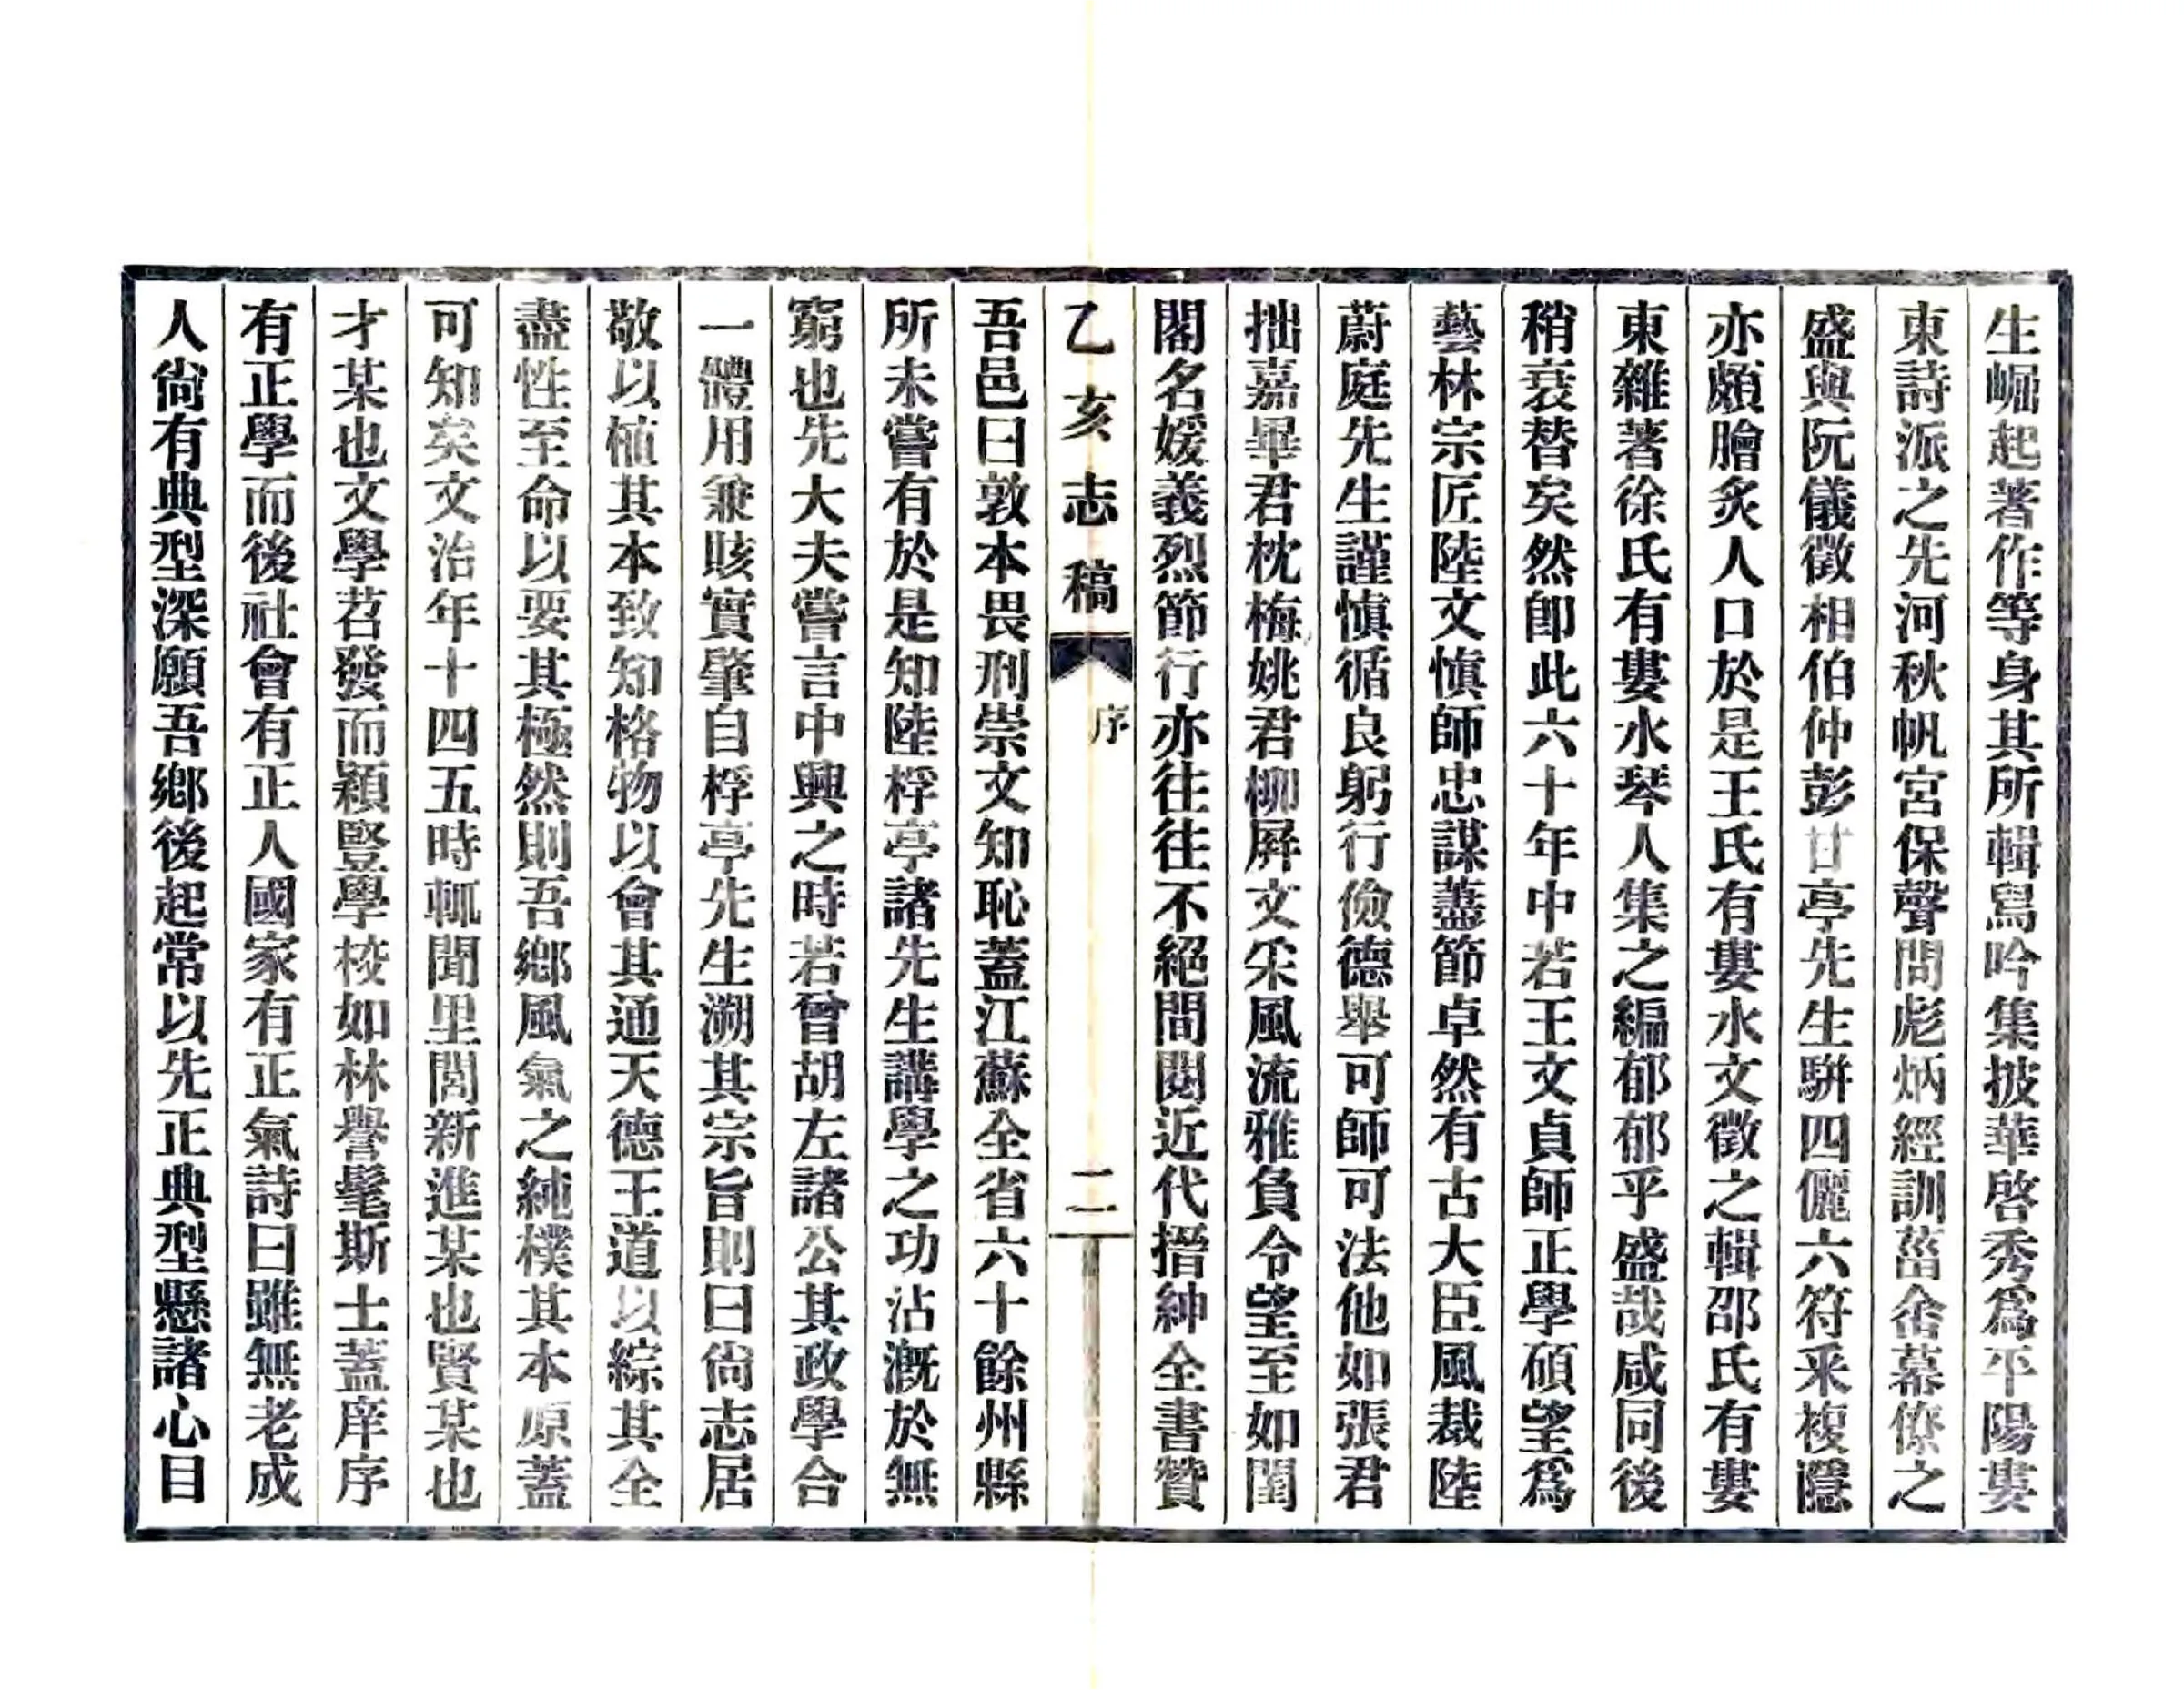 生崛起著作等身其所輯舃吟集披華啓秀爲平陽婁
東詩派之先河秋帆宮保聲問彪炳經訓菑畬幕僚之
盛與阮儀徵相伯仲彭甘亭先生駢四儷六符釆複隱
亦頗膾炙人口於是王氏有婁水文徵之輯邵氏有婁
東雜著徐氏有婁水琴人集之編郁郁乎盛哉咸同後
稍衰替矣然卽此六十年中若王文貞師正學碩望爲
藝林宗匠陸文愼師忠謀藎節卓然有古大臣風裁陸
蔚庭先生謹愼循良躬行儉德舉可師可法他如張君
拙嘉畢君枕梅姚君柳屏文采風流雅負令望至如閨
閣名媛義烈節行亦往往不絕間閱近代搢紳全書贊
乙亥志稿 序 二
吾邑曰敦本畏刑崇文知恥蓋江蘇全省六十餘州縣
所未嘗有於是知陸桴亭諸先生講學之功沾漑於無
窮也先大夫嘗言中興之時若曾胡左諸公其政學合
一體用兼賅實肇自桴亭先生溯其宗旨則曰尙志居
敬以植其本致知格物以會其通天德王道以綜其全
盡性至命以要其極然則吾鄉風氣之純樸其本原蓋
可知矣文治年十四五時輒聞里閭新進某也賢某也
才某也文學苕發而穎豎學校如林譽髦斯士蓋庠序
有正學而後社會有正人國家有正氣詩曰雖無老成
人尙有典型深願吾鄉後起常以先正典型懸諸心目